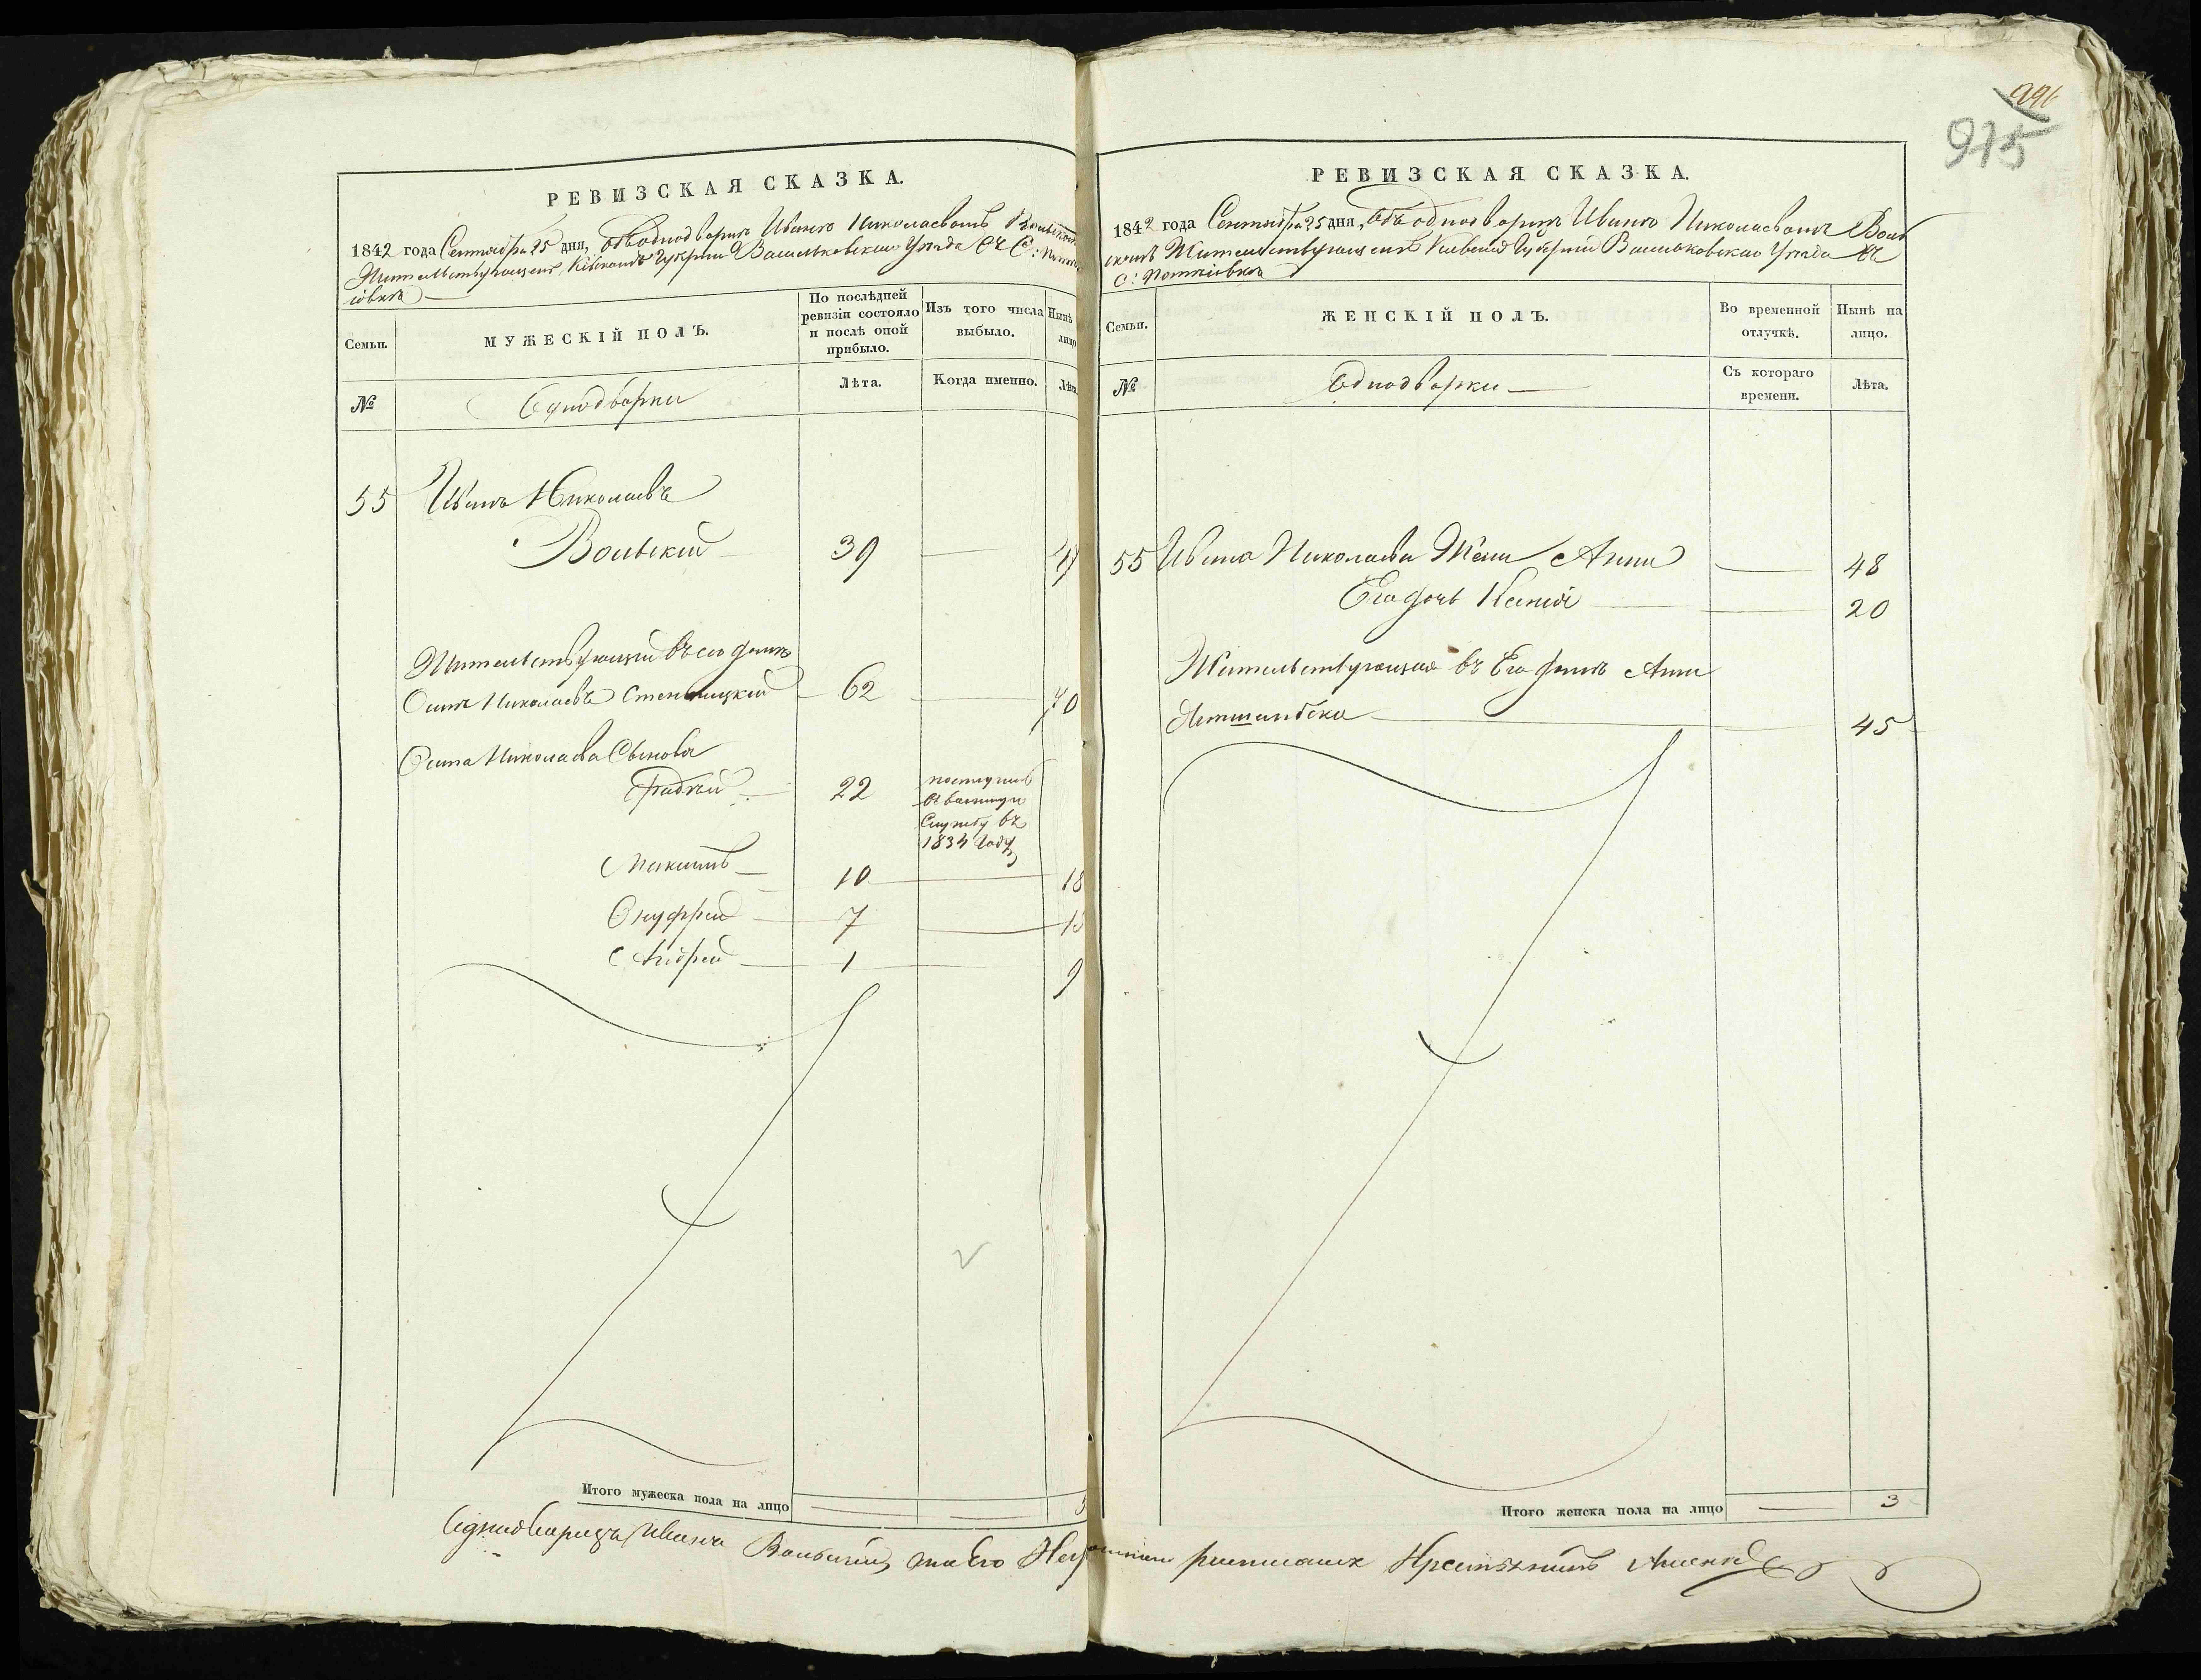 РЕВИЗСКАЯ СКАЗКА.
1842 года Сентября 25 дня, Объ однодворцѣ Иванѣ Николаевомъ
Жительствующемъ Кіевской Губерніи Васильковскаго Уѣзда Въ С:
Семьи.
МУЖЕСКІЙ ПОЛЪ.
По послѣдней ревизіи состояло и послѣ оной прибыло.
Изъ того числа выбыло.
Нынѣ лицо
№
Однодворки
Лѣта.
Когда именно.
Лѣта
55 Иванъ Николаевъ
Вольскій 39
Жительствующій въ его домѣ
Осипъ Николаевъ 62 70
Осипа Николаева Сыновья
22 поступилъ
въ воинскую
Службу въ
1834 Году
Максимъ 10 18
Онуфрій 7 15
Андрей 1 9
Итого мужеска пола на лицо 5
296
975
РЕВИЗСКАЯ СКАЗКА.
1842 года Сентября 25 дня, Объ однодворцѣ Иванѣ Николаевомъ Воль
скомъ Жительствующемъ Кіевской Губерніи Васильковскаго Уѣзда Въ
С:
Семьи.
ЖЕНСКІЙ ПОЛЪ.
Во временной отлучкѣ.
Нынѣ на лицо.
№
Однодворки
Съ котораго времени.
Лѣта.
55 Ивана Николаева Жена Анна 48
Его дочь Ксенія 20
Жительствующая въ Его домѣ Анна
45
Итого женска пола на лицо 3
Однодворецъ Иванъ Вольскій, а за Его росписался Крестьянинъ